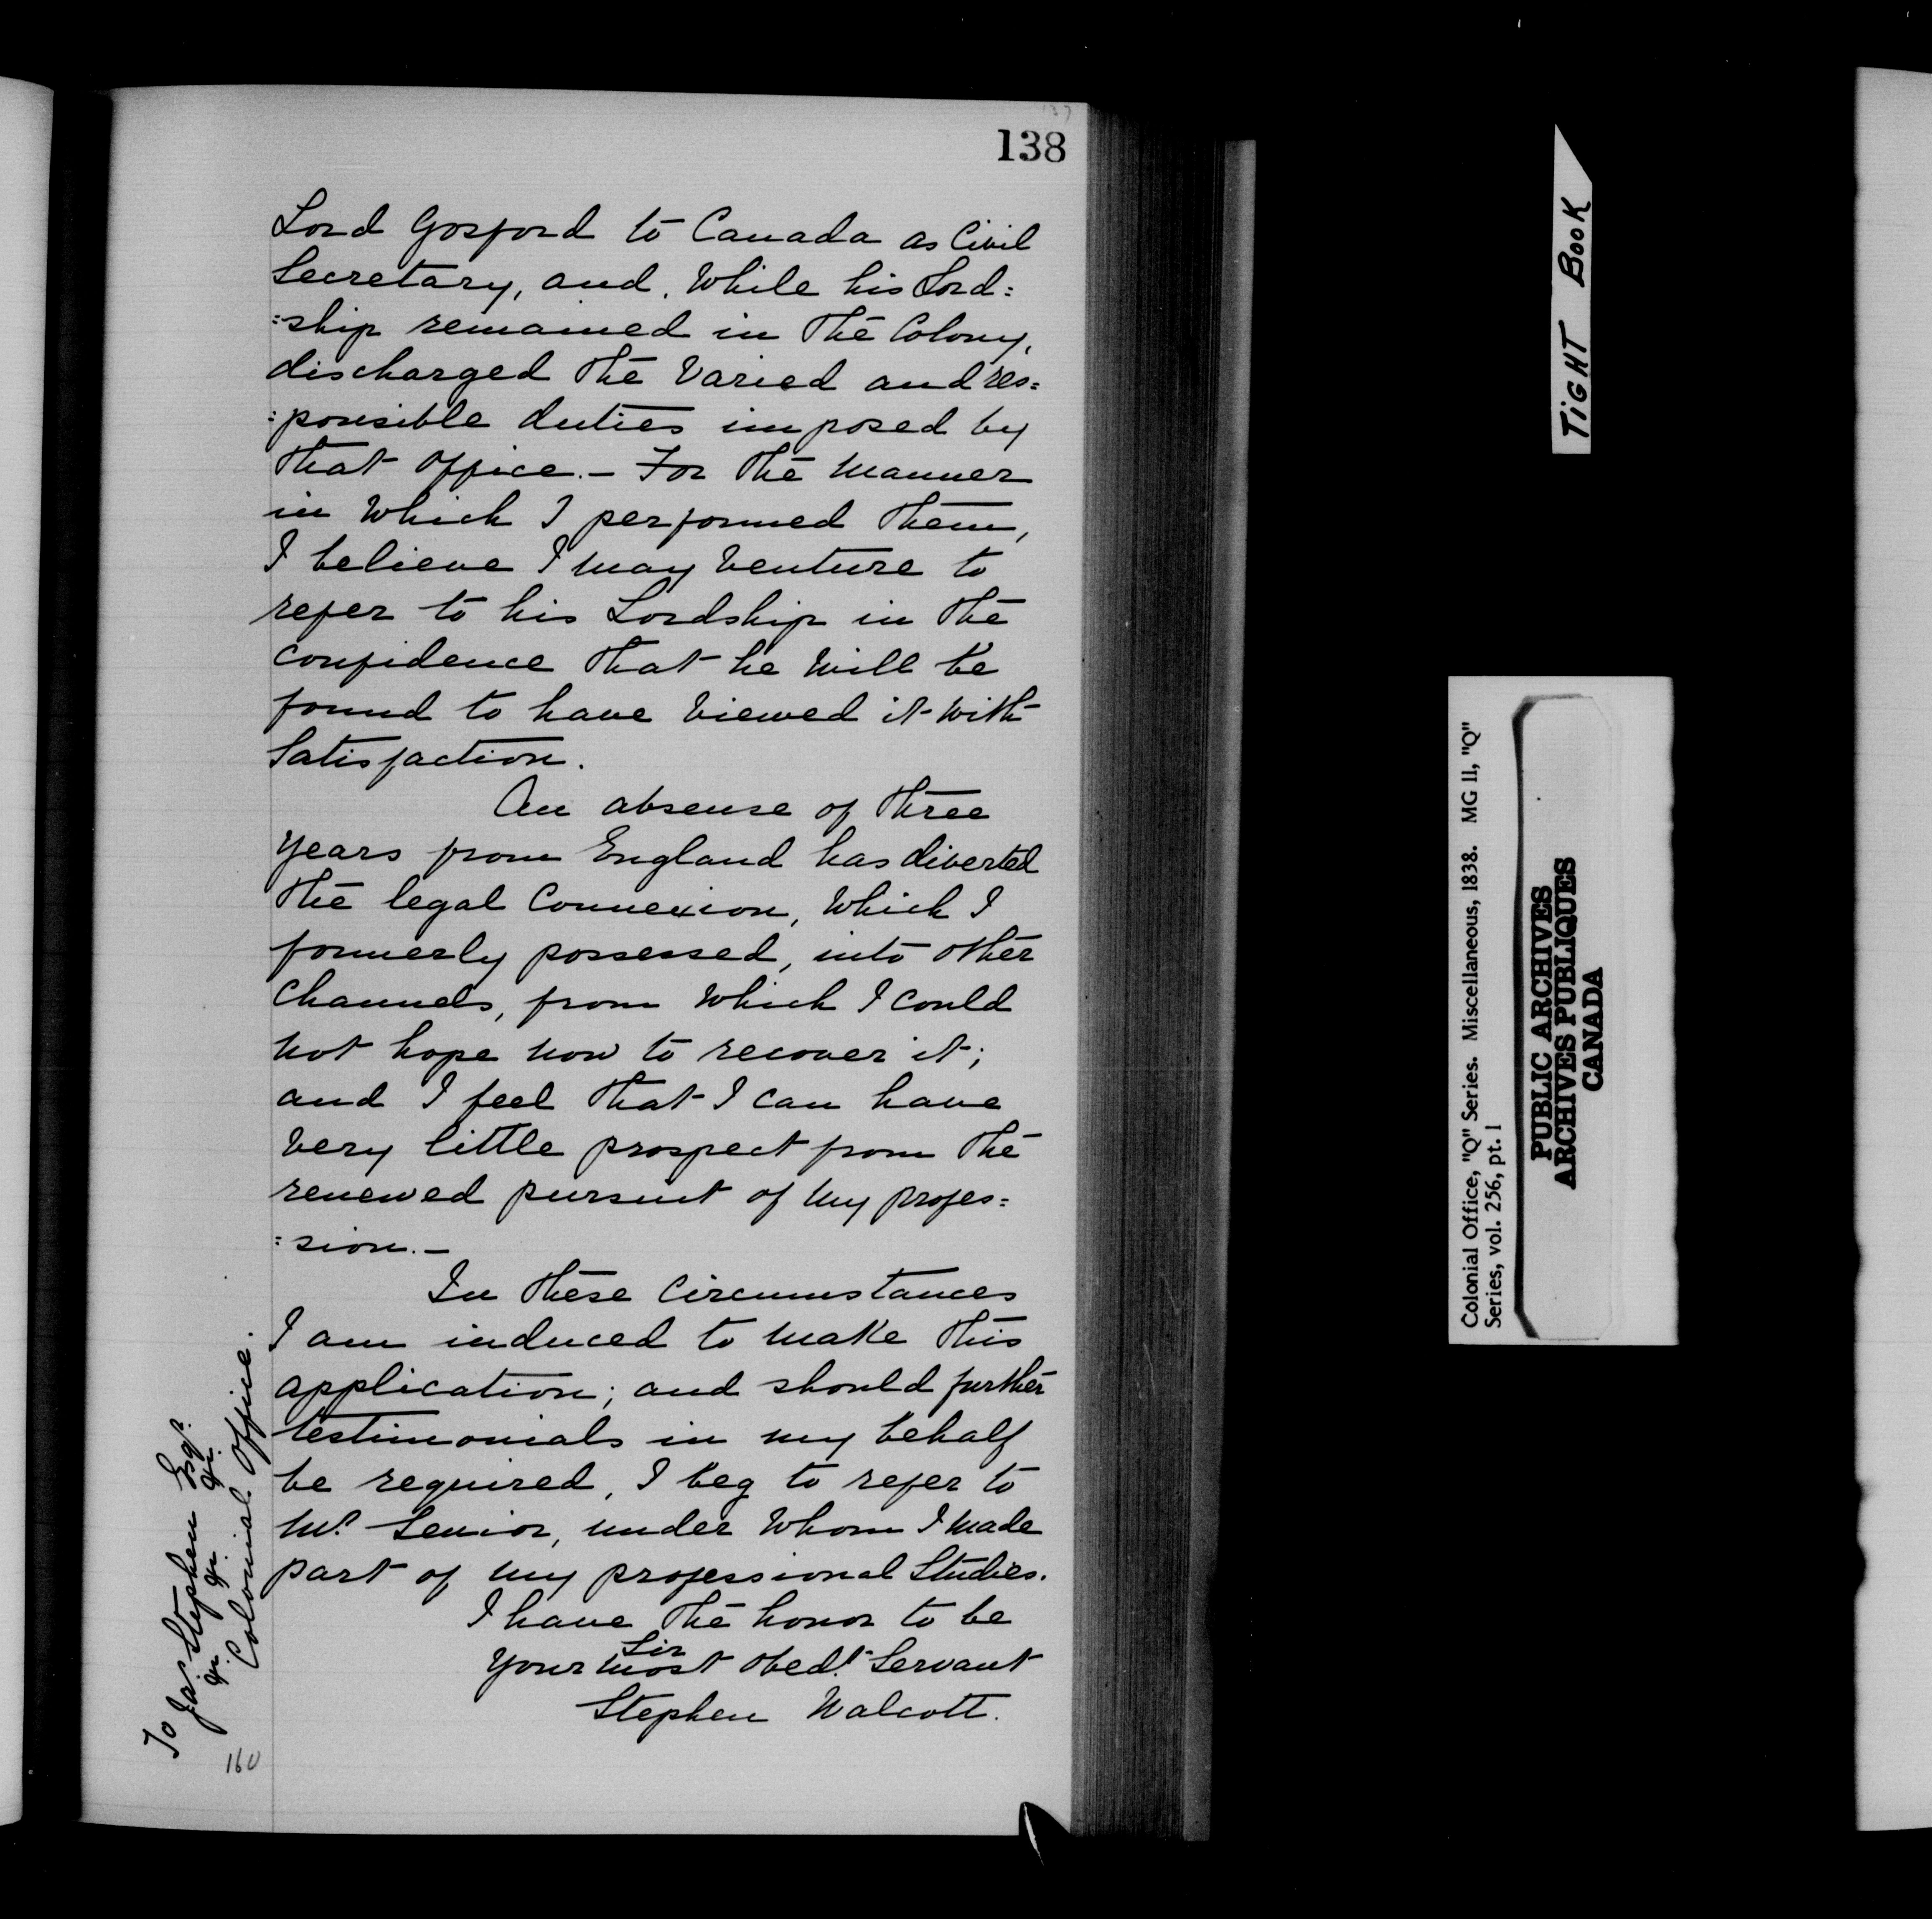 138
Lord Gosford to Canada as Civil
Secretary, and, while his Lord=
=ship remained in the Colony,
discharged the varied and res=
=ponsible duties imposed by
that office. – For the manner
in which I performed them,
I believe I may venture to
refer to his Lordship in the
confidence that he will be
found to have viewed it with
satisfaction.
An absense of three
years from England has diverted
the legal connexion, which I
formerly possessed, into other
channels, from which I could
not hope now to recover it;
and I feel that I can have
very little prospect from the
renewed pursuit of my profes=
=sion. –
In these circumstances
I am induced to make this
application; and should further
testimonials in my behalf
be required, I beg to refer to
Mr. Senior, under whom I made
part of my professional studies.
I have the honor to be
Sir
Your most obedt. Servant
Stephen Walcott.
To
Jas. Stephen Esqr.
&c. &c. &c.
Colonial Office.
160
TIGHT BOOK
Colonial Office, "Q" Series. Miscellaneous, 1838. MG 11, "Q"
Series, vol. 256, pt. 1
PUBLIC ARCHIVES
ARCHIVES PUBLIQUES
CANADA